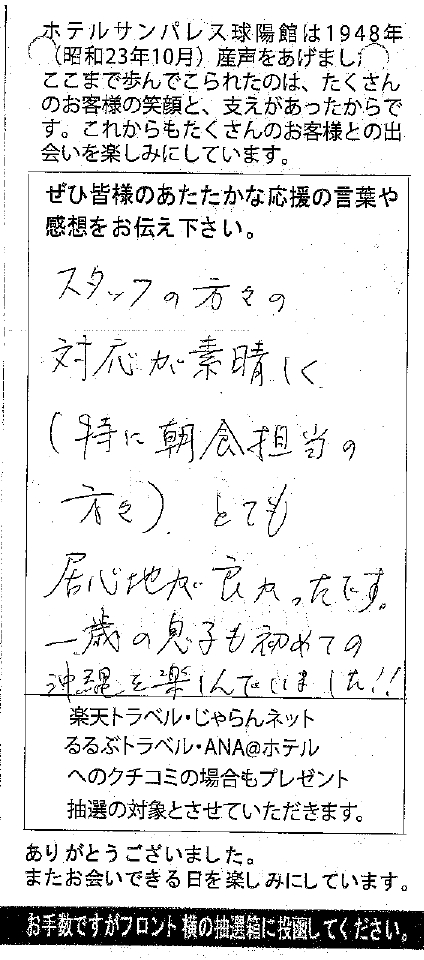 ホテルサンパレス球陽館は1948年
（昭和23年10月）産声をあげまし
ここまで歩んでこられたのは、たくさん
のお客様の笑顔と、支えがあったからで
す。これからもたくさんのお客様との出
会いを楽しみにしています。
ぜひ皆様のあたたかな応援の言葉や
感想をお伝え下さい。
スタッフの方々の
対応が素晴しく
(特に朝食担当の
方々)、とても
居心地が良かったです。
一歳の息子も初めての
沖縄を楽しんでいました!!
楽天トラベル・じゃらんネット
るるぶトラベル・ANA@ホテル
へのクチコミの場合もプレゼント
抽選の対象とさせていただきます。
ありがとうございました。
またお会いできる日を楽しみにしています。
お手数ですがフロント横の抽選箱に投函してください。